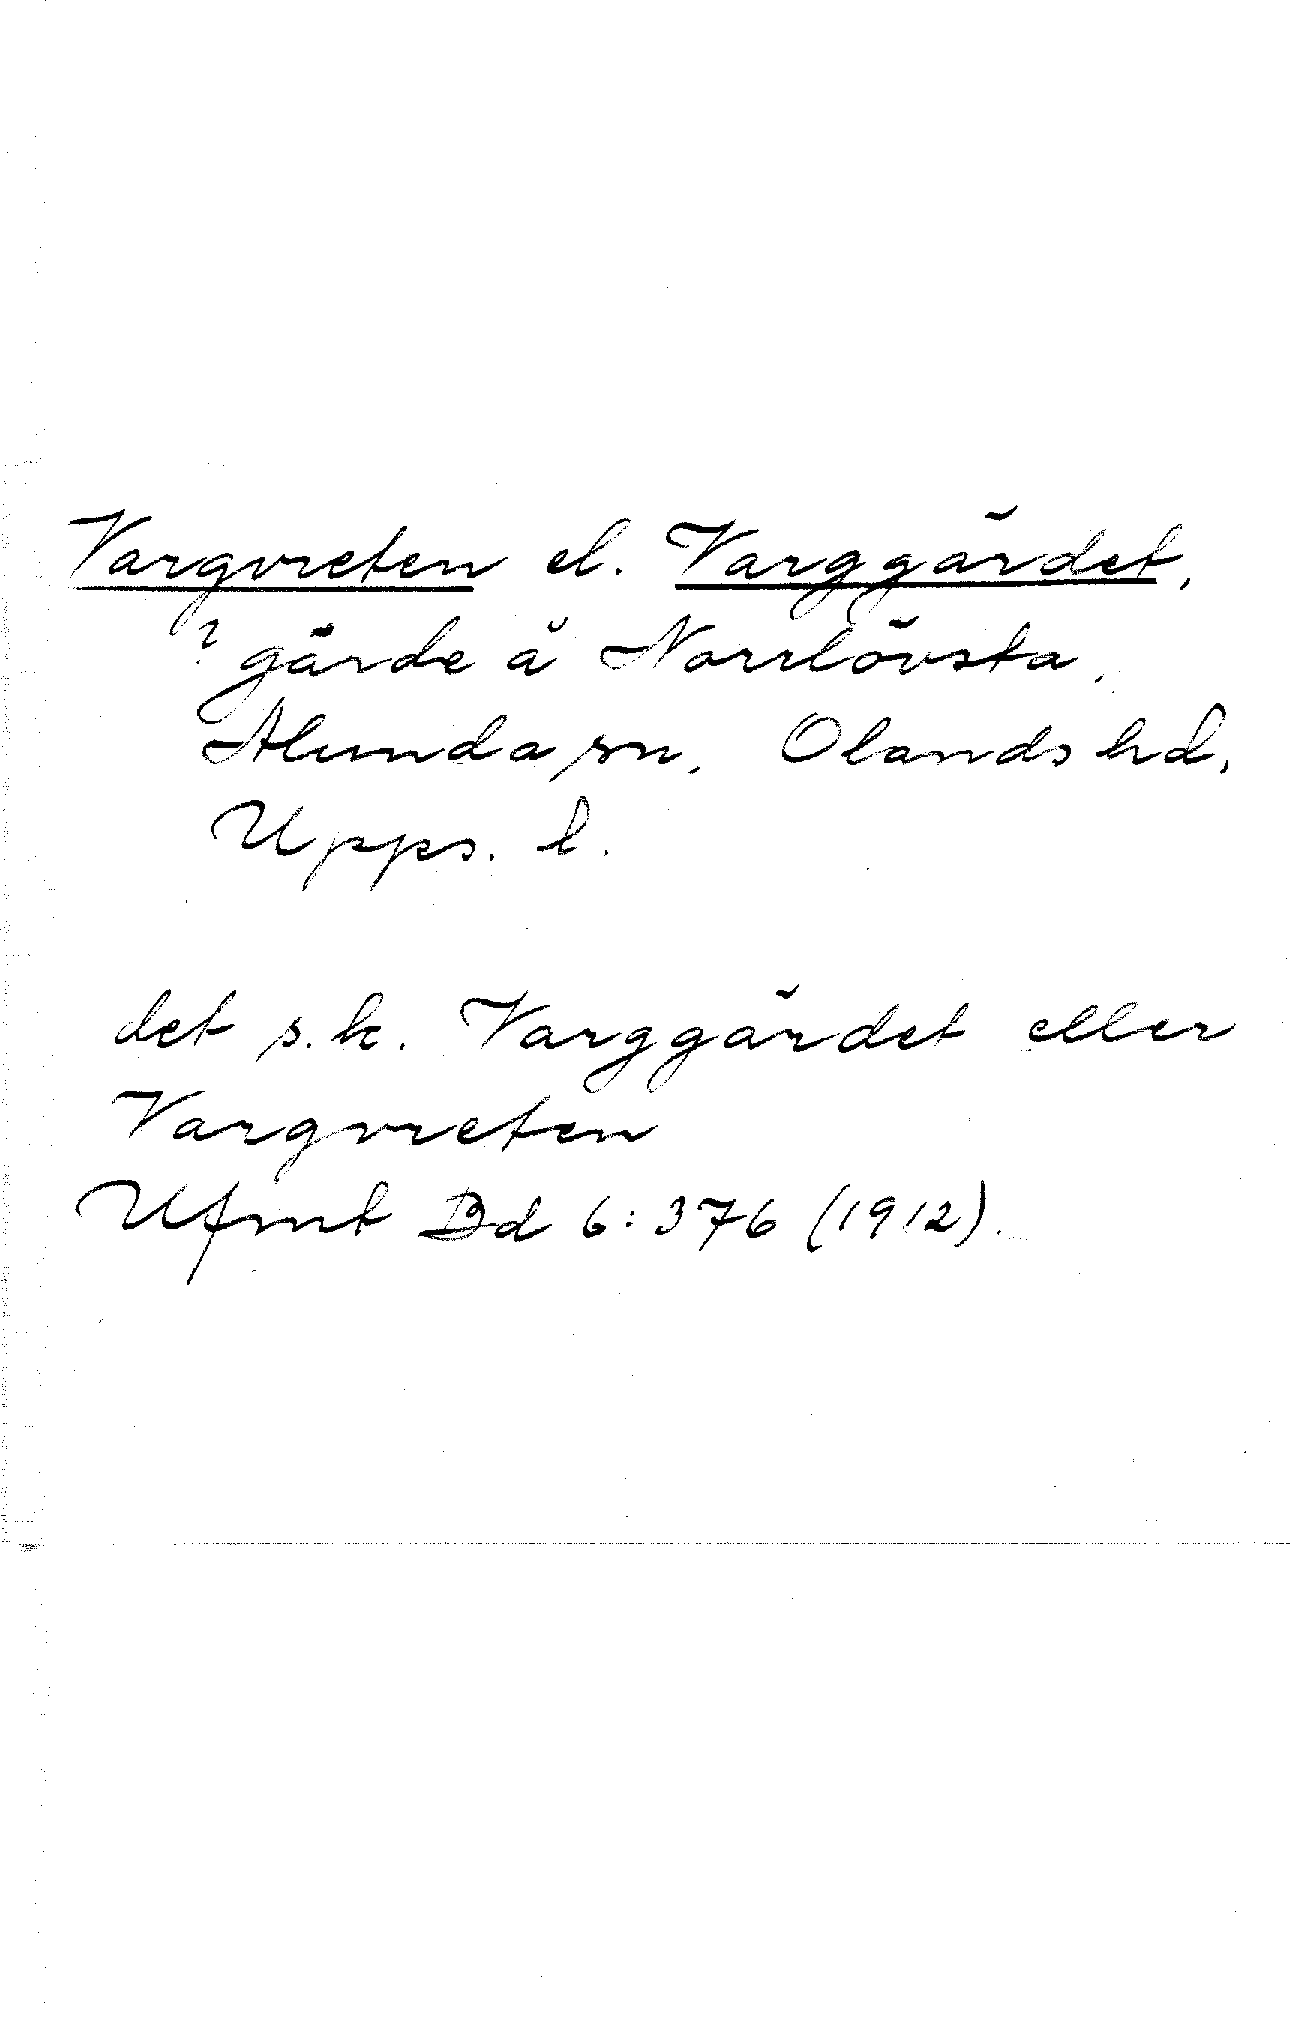 Vargvreten el. Varggärdet,
? gärde å Norrlövsta,
Alunda sn, Olands hd,
Upps. l.
det s.k. Varggärdet eller
Vargvreten
Ufmt Bd 6:376 (1912).